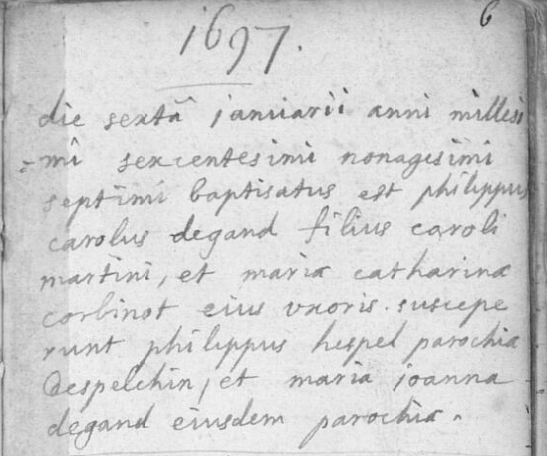 6
1697.
die sextâ januarii anni millesi
=mi sexcentesimi nonagesimi
septimi baptisatus est philippus
carolus degand filius caroli
martini, et mariæ catharinæ
corbinot eius uxoris. suscepe
runt philippus hespel parochiæ
Despelchin, et maria joanna
degand eiusdem parochiæ.